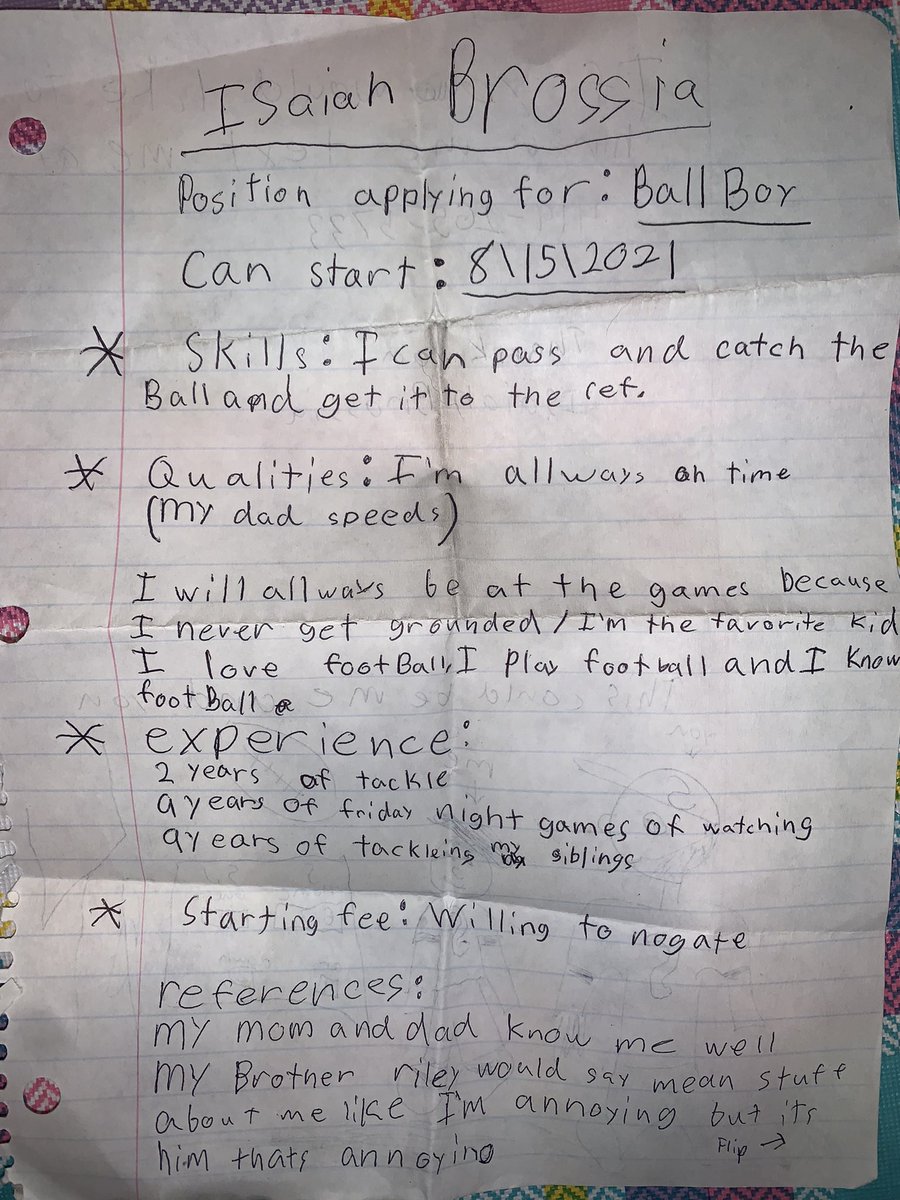 Isaiah Brossia
Position applying for: Ball Boy
Can start: 8\15\2021
* Skills: I can pass and catch the
Ball and get it to the ref.
* Qualities: I'm allways on time
(My dad speeds)
I will allways be at the games because
I never get grounded/I'm the favorite kid
I love footBall, I Play football and I know
footBall
* experience:
2 years of tackle
9 years of friday night games of watching
9 years of tackleing my siblings
* Starting fee: Willing to nogate
references:
my mom and dad know me well
my Brother riley would say mean stuff
about me like I'm annoying but its
him thats annoying
Flip →